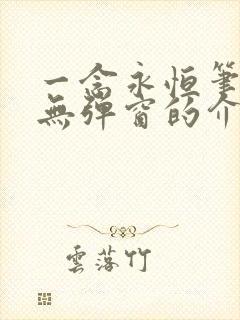 一念永恒筆
無彈窗的介
雲落竹